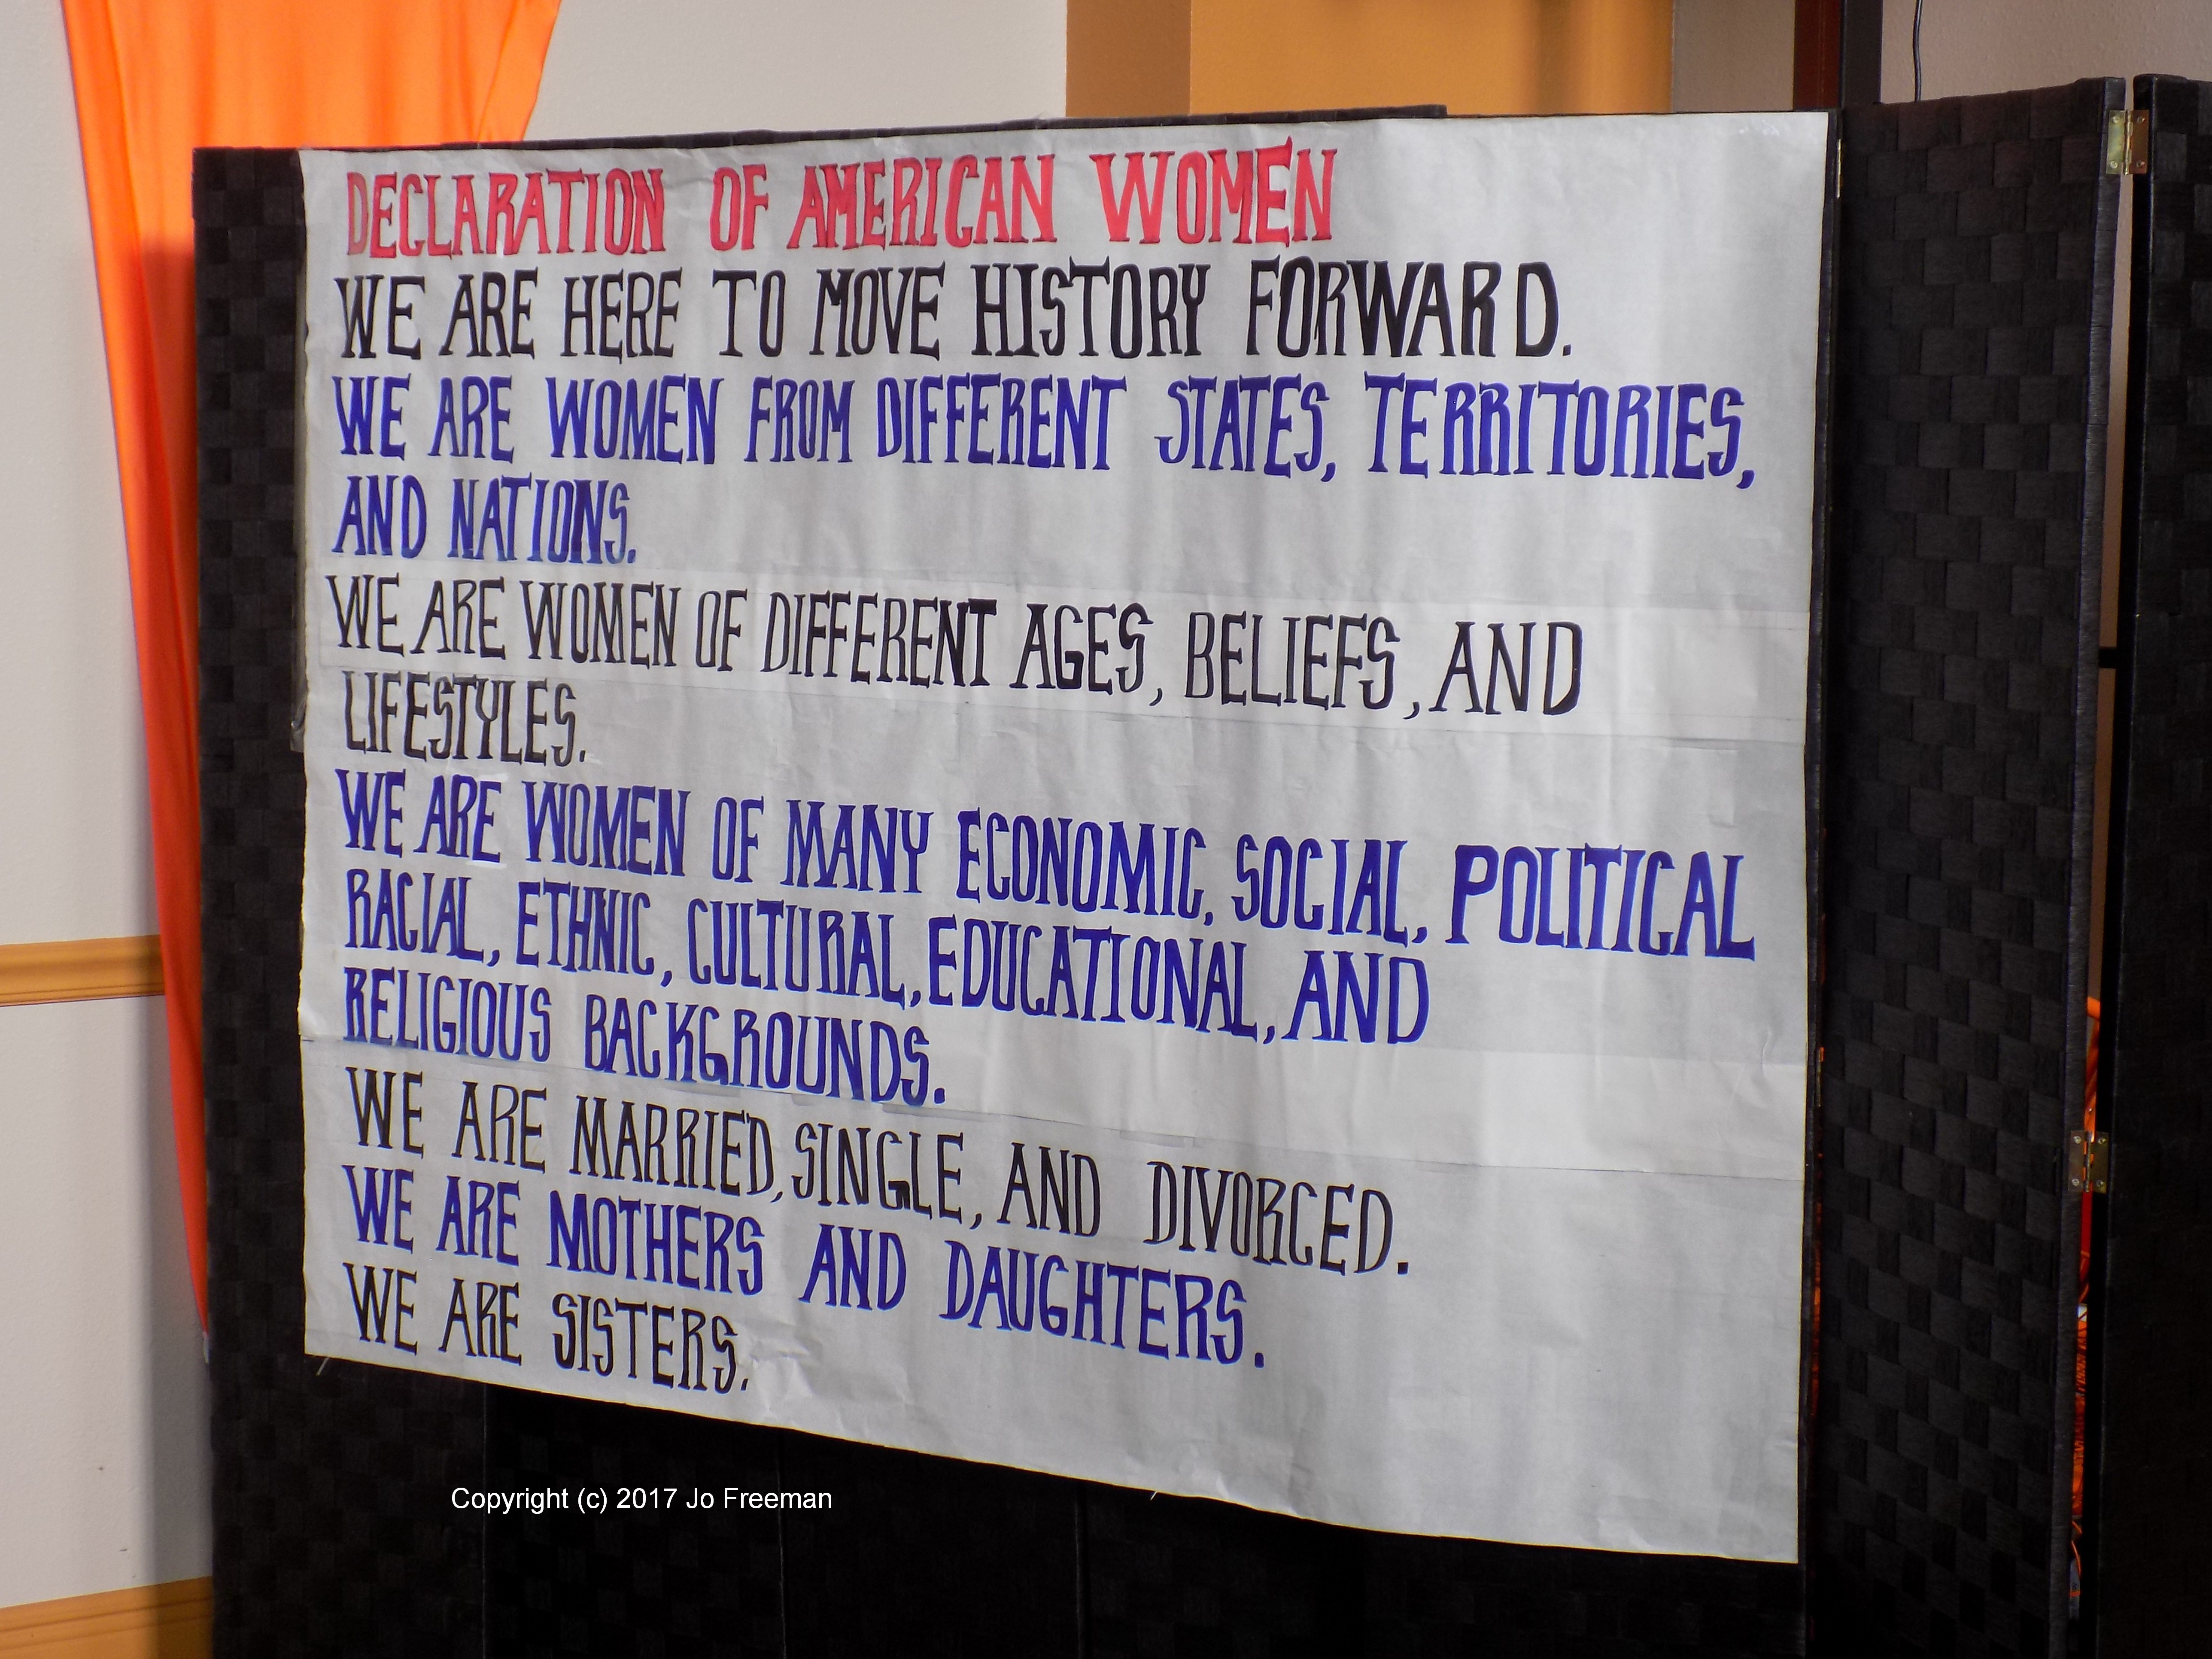 DECLARATION OF AMERICAN WOMEN
WE ARE HERE TO MOVE HISTORY FORWARD.
WE ARE WOMEN FROM DIFFERENT STATES, TERRITORIES,
AND NATIONS.
WE ARE WOMEN OF DIFFERENT AGES, BELIEFS, AND
LIFESTYLES.
WE ARE WOMEN OF MANY ECONOMIC, SOCIAL, POLITICAL
RACIAL, ETHNIC, CULTURAL, EDUCATIONAL, AND
RELIGIOUS BACKGROUNDS.
WE ARE MARRIED, SINGLE, AND DIVORCED.
WE ARE MOTHERS AND DAUGHTERS.
WE ARE SISTERS.
Copyright (c) 2017 Jo Freeman